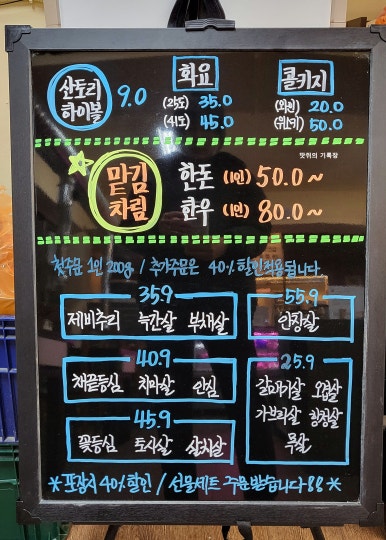 산토리
하이볼 9.0
화요
(25도) 35.0
(41도) 45.0
콜키지
(와인) 20.0
(위스키) 50.0
맛쥐의 기록장
맡김
차림
한돈 (1인) 50.0~
한우 (1인) 80.0~
첫주문 1인 200g / 추가주문은 40% 할인적용됩니다.
35.9
제비추리 늑간살 부채살
55.9
안창살
40.9
채끝등심 치마살 안심
45.9
꽃등심 토시살 살치살
25.9
갈매기살 오겹살
가브리살 항정살
목살
*포장시 40% 할인 / 선물세트 주문받습니다88*